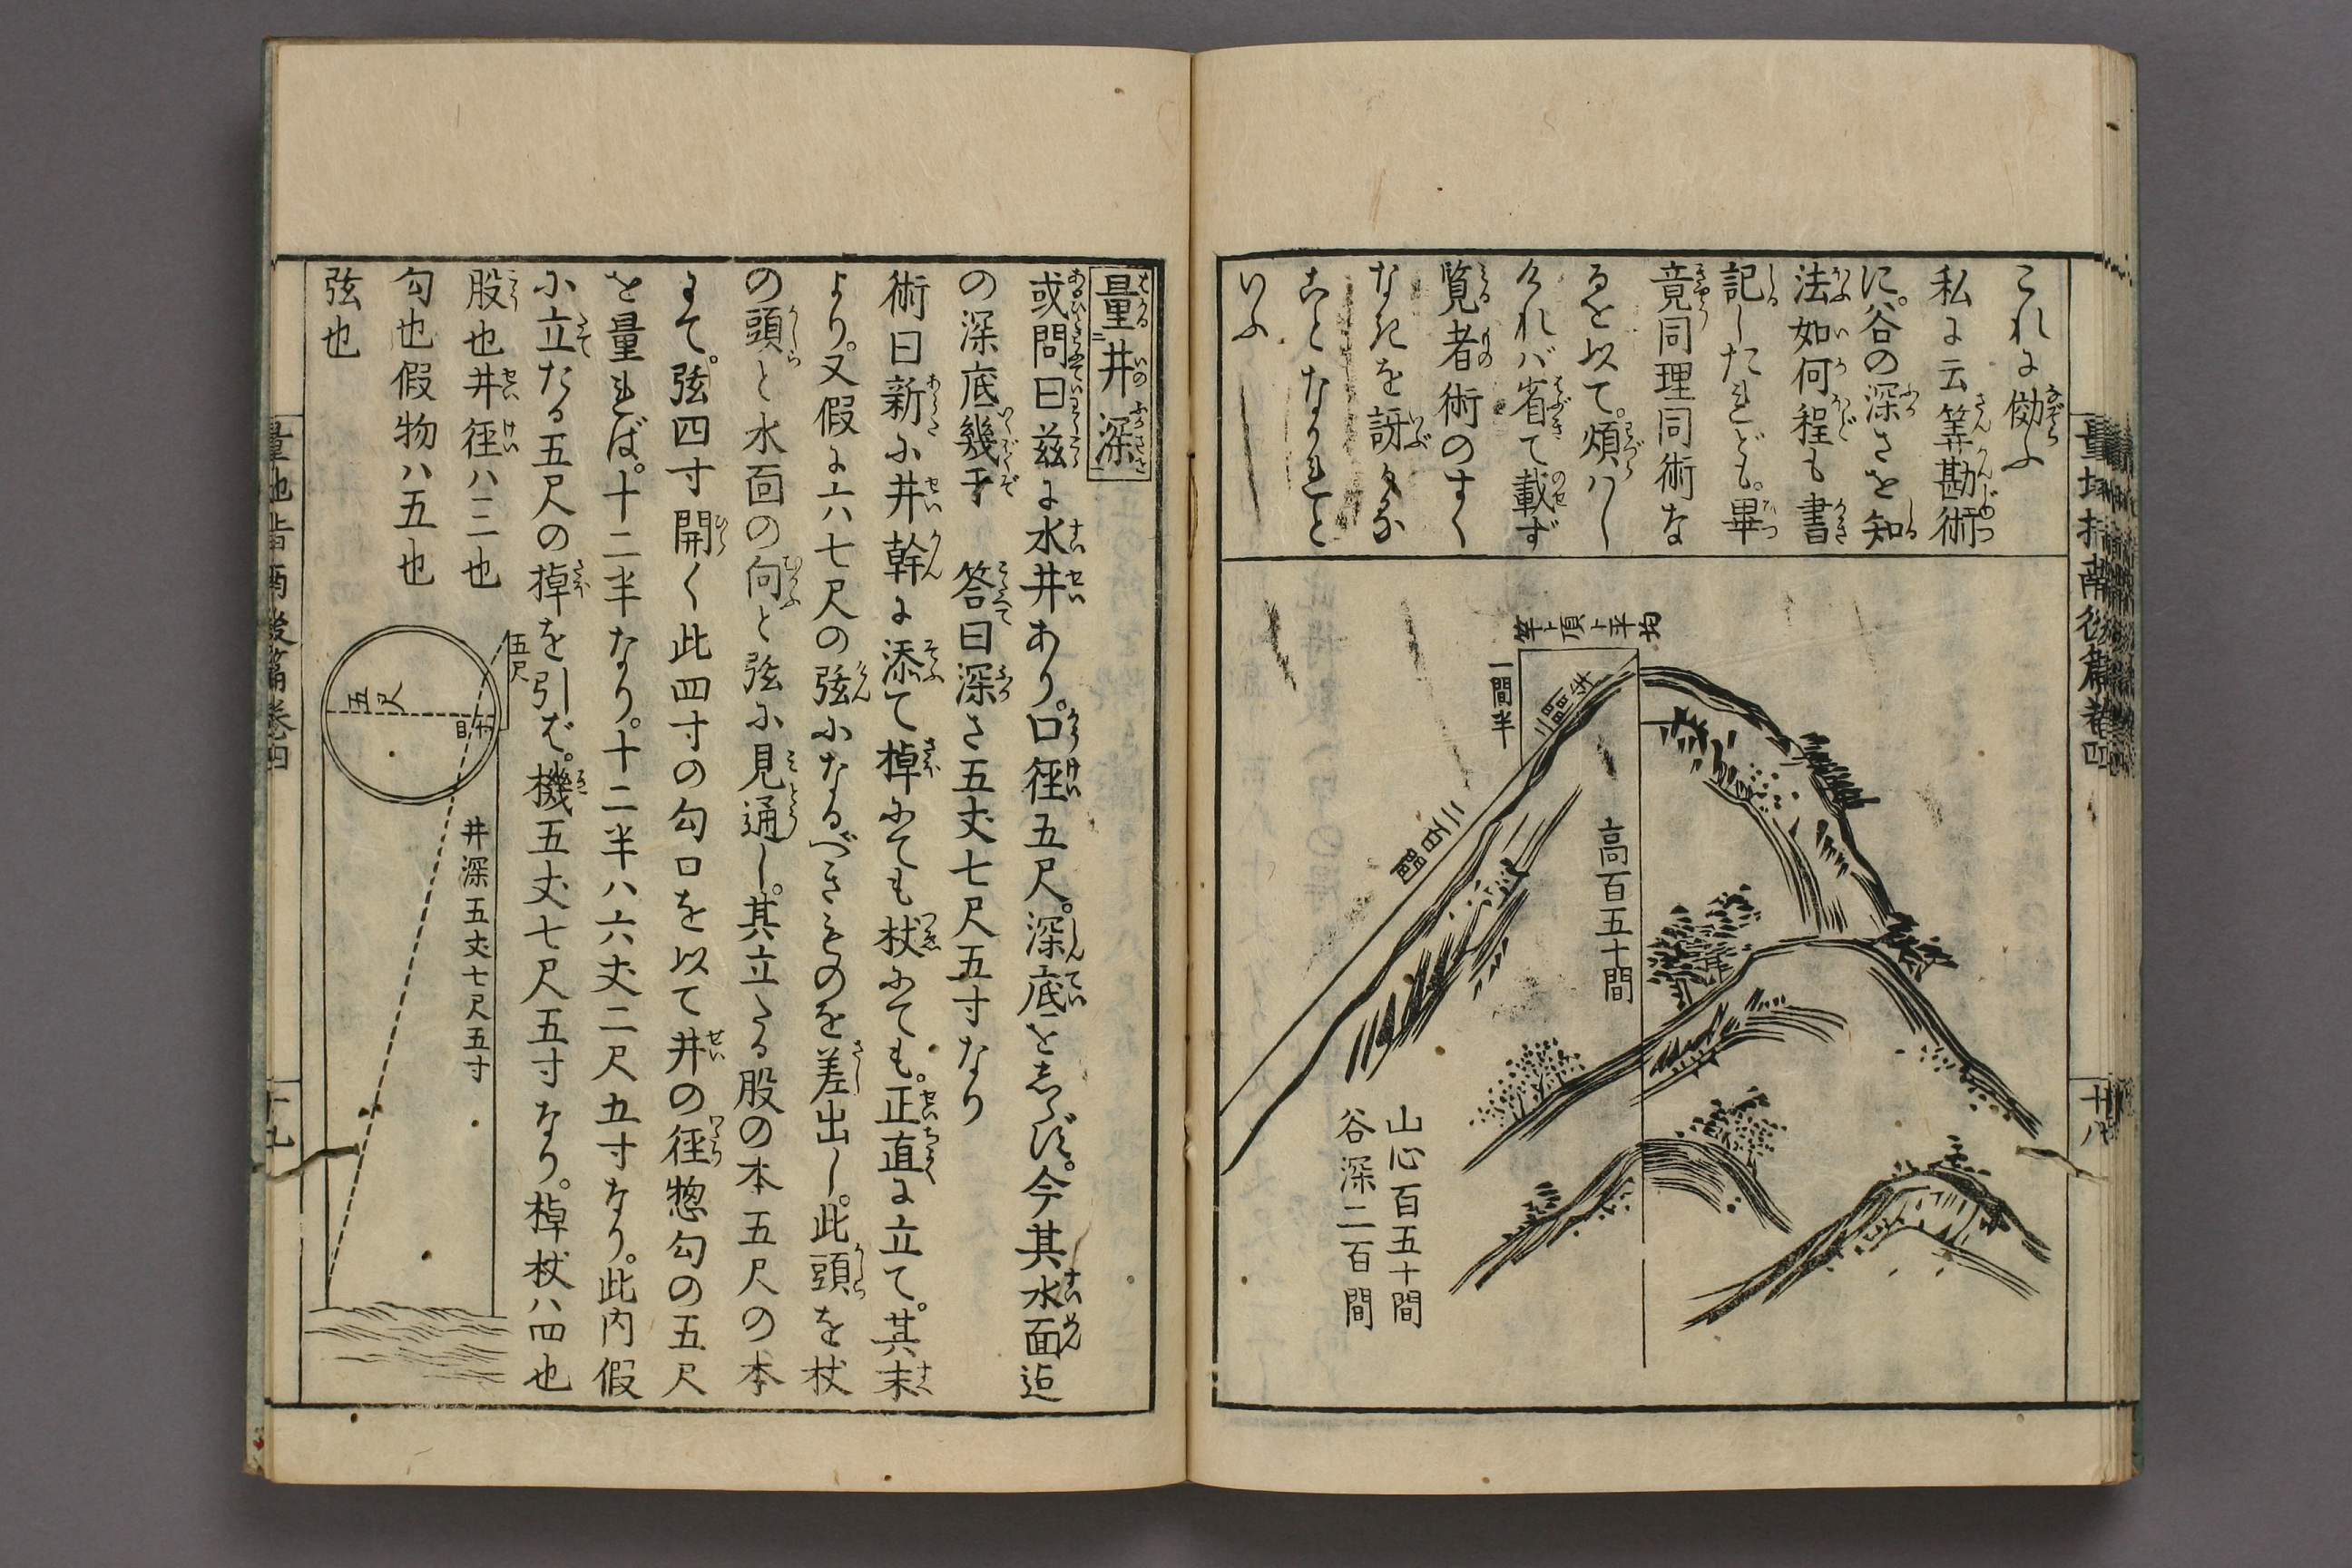 量地指南後篇卷四
十八
これに傚ふ
私に云筭勘術
に。谷の深さを知
法如何程も書
記したれども。畢
竟同理同術な
るを以て。煩ハし
けれバ省て載ず
覧者術のすく
なきを訝かる
ことなかれと
いふ
竿ト頂ト平均
一間半
二百間
高百五十間
山心百五十間
谷深二百間
量井深
或問曰茲に水井あり。口徑五尺。深底をしらず。今其水面迠
の深底幾乎　答曰深さ五丈七尺五寸なり
術曰新に井幹に添て棹にても杖にても。正直に立て。其末
より。又假に六七尺の弦になるべきものを差出し。此頭を杖
の頭と水面の向と弦に見通し。其立たる股の本五尺の本
まて。弦四寸開く此四寸の勾口を以て井の徑惣勾の五尺
を量れば。十二半なり。十二半ハ六丈二尺五寸なり。此内假
に立たる五尺の棹を引ば。機五丈七尺五寸なり。棹杖ハ四也
股也井徑ハ三也
勾也假物ハ五也
弦也
伍尺
五尺
四寸
井深五丈七尺五寸
量地指南後篇卷四
十九